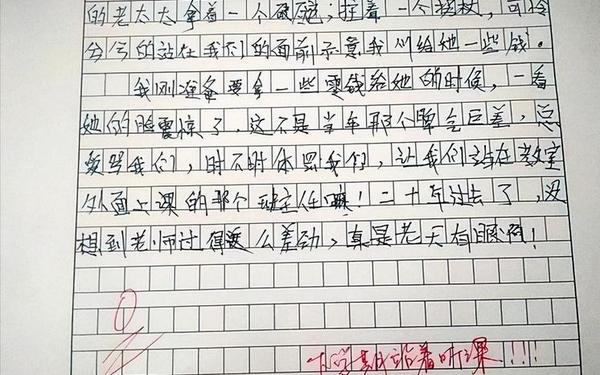 的老太太拿着一个破碗;拄着一个拐杖,可怜
兮兮的站在我们的面前示意我们给她一些钱。
我刚准备要拿一些零钱给她的时候,一看
她的脸震惊了,这不是当年那个脾气巨差,总
骂我们,时不时体罚我们,让我们站在教室
外面上课的那个班主任嘛!二十年过去了,没
想到老师过得这么差劲,真是老天有眼啊!
0
下学期站着听课!!!